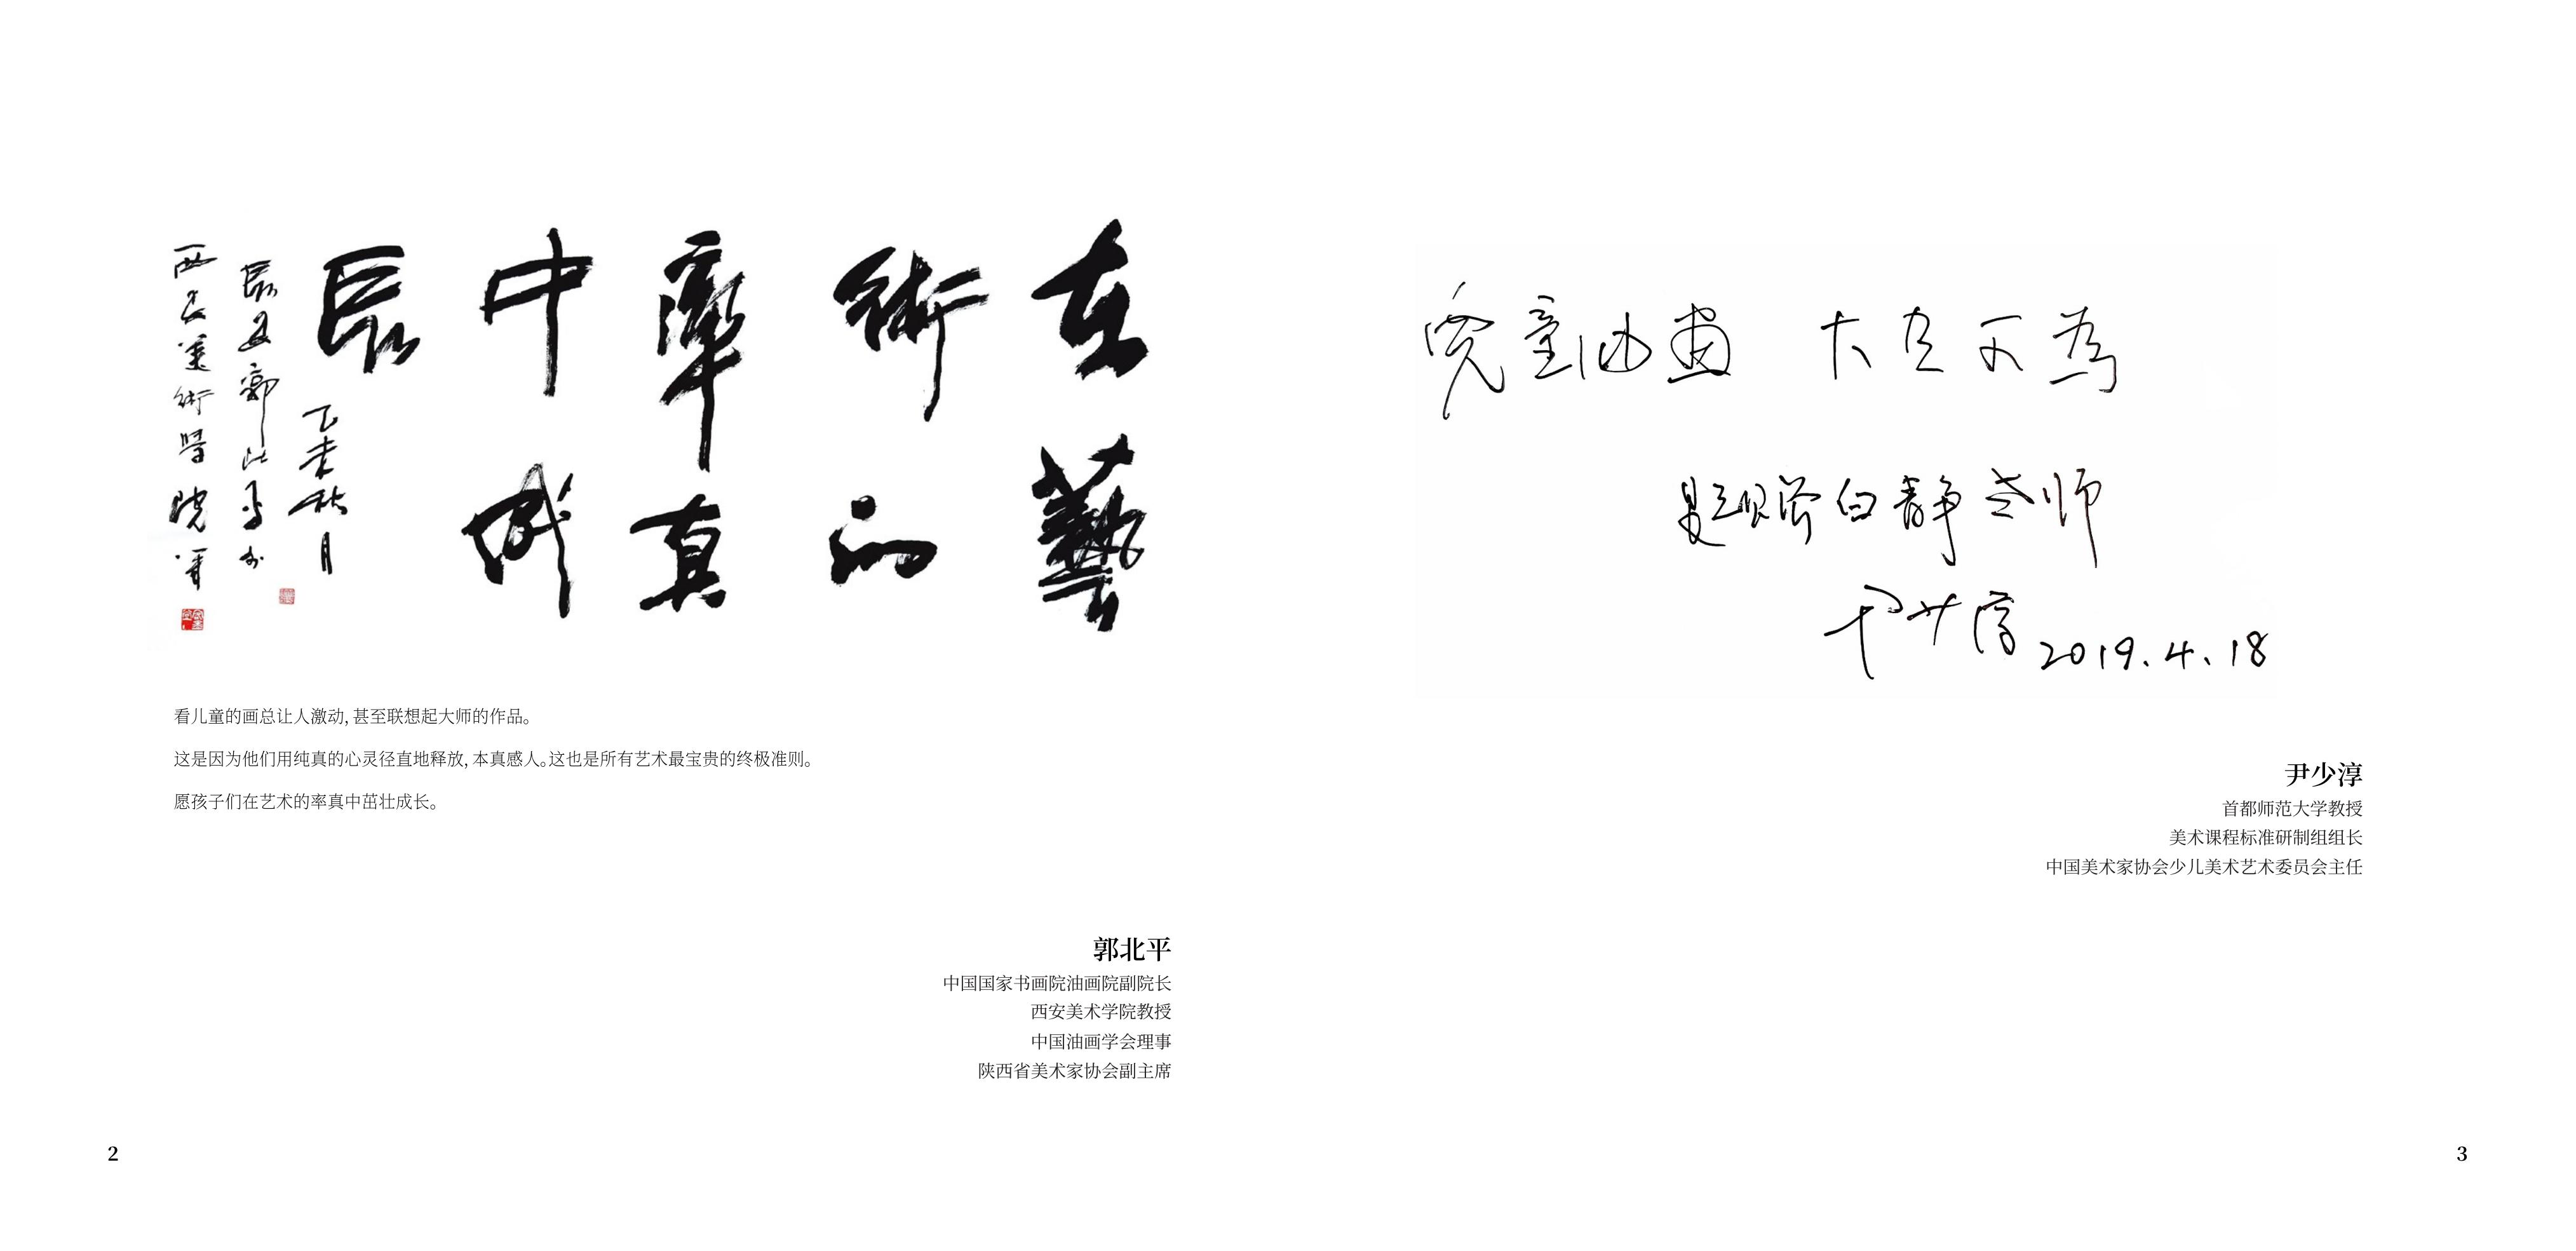 在藝
術的
率真
中成
長
乙未秋月
長安郭北平於
西安美術學院
看儿童的画总让人激动，甚至联想起大师的作品。
这是因为他们用纯真的心灵径直地释放，本真感人。这也是所有艺术最宝贵的终极准则。
愿孩子们在艺术的率真中茁壮成长。
郭北平
中国国家书画院油画院副院长
西安美术学院教授
中国油画学会理事
陕西省美术家协会副主席
2
童油画 大有可為
题赠白静老师
尹少淳 2019.4.18
尹少淳
首都师范大学教授
美术课程标准研制组组长
中国美术家协会少儿美术艺术委员会主任
3